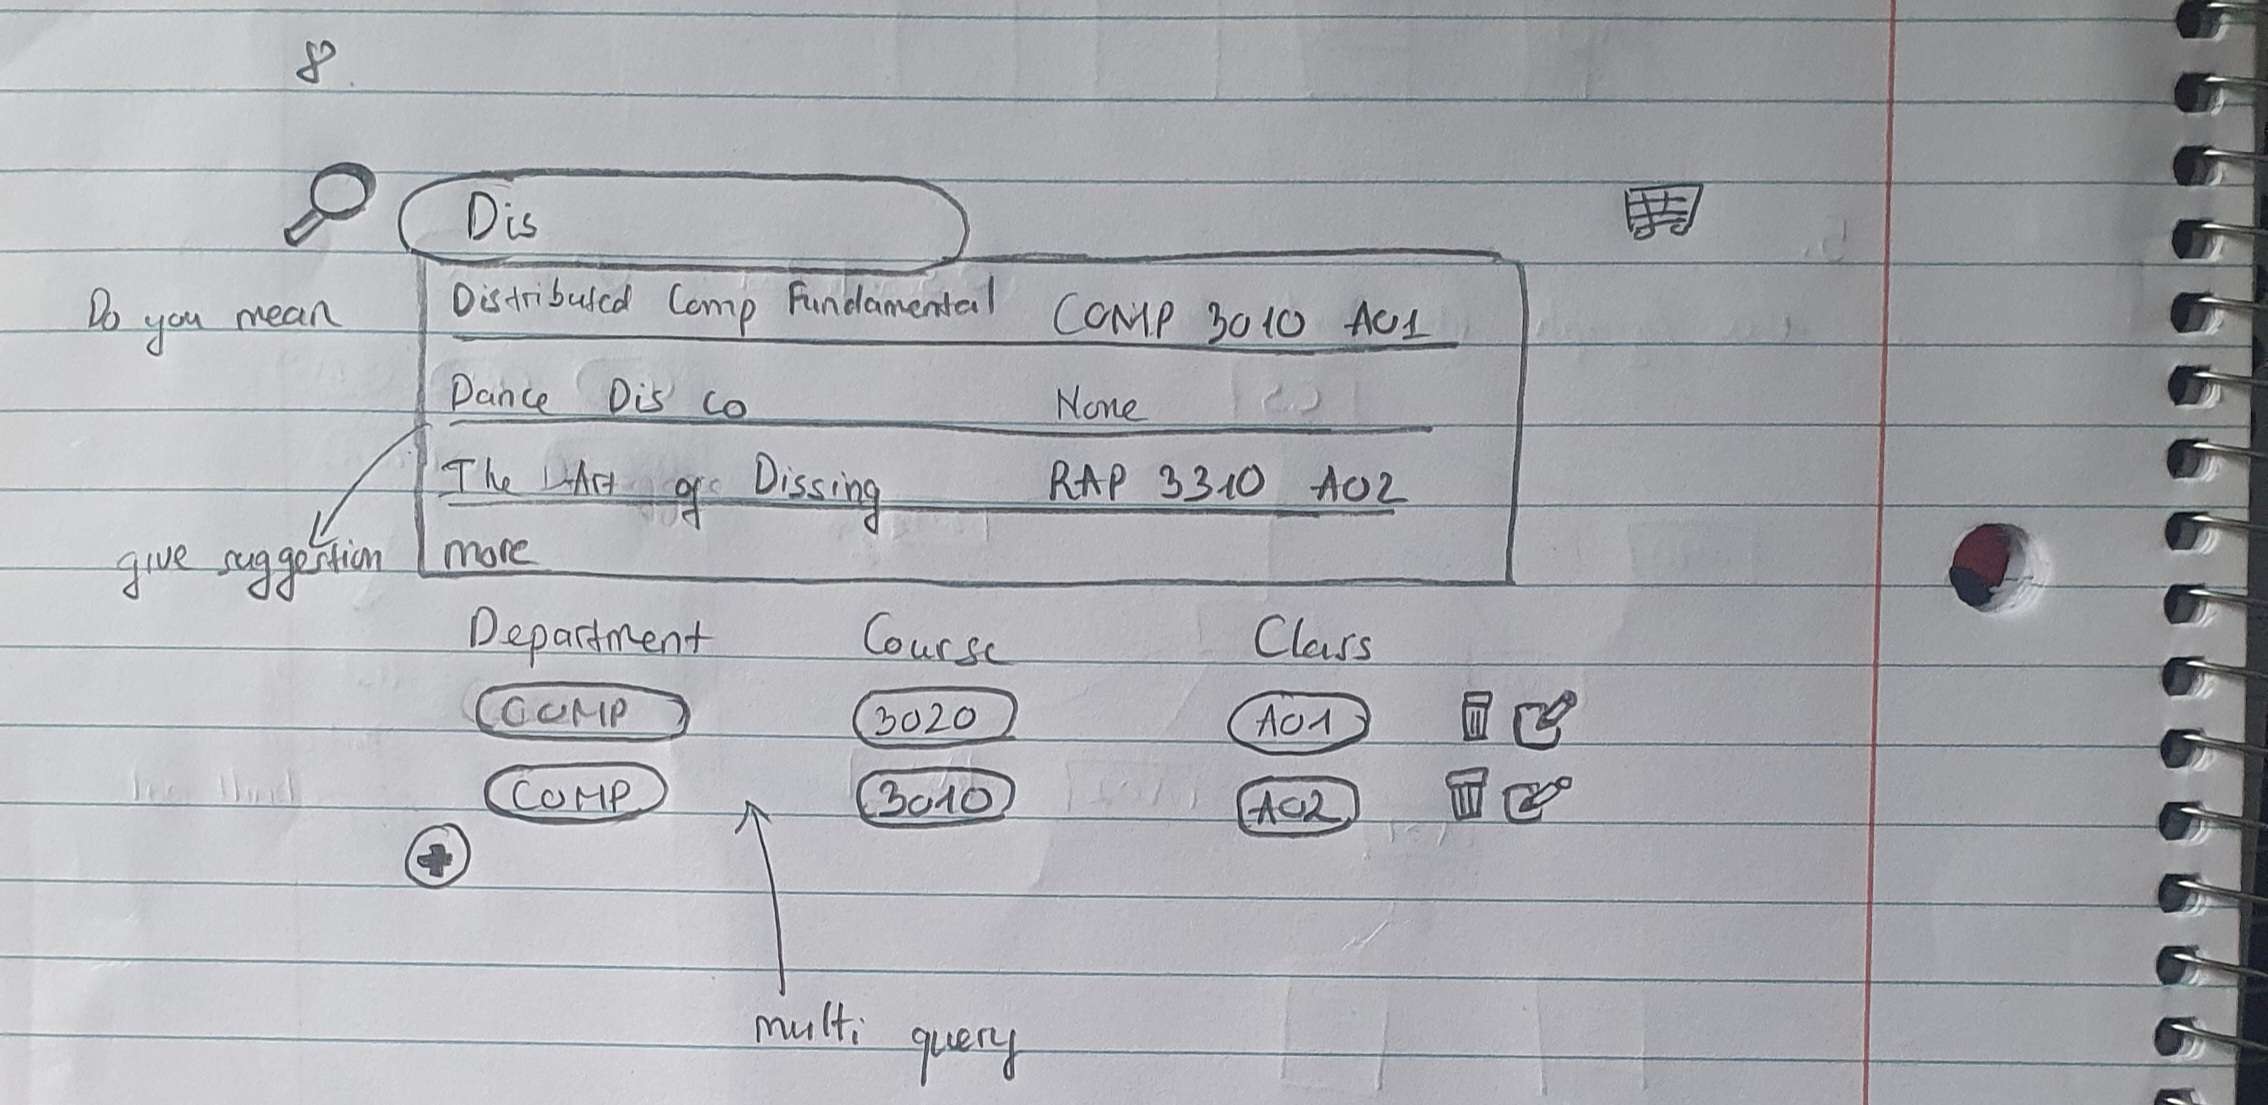 8.
Dis
Do you mean
Distributed Comp Fundamental COMP 3010 A01
Dance Dis co None
The Art of Dissing RAP 3310 A02
give suggestion
more
Department Course Class
COMP 3020 A01
COMP 3010 A02
multi query